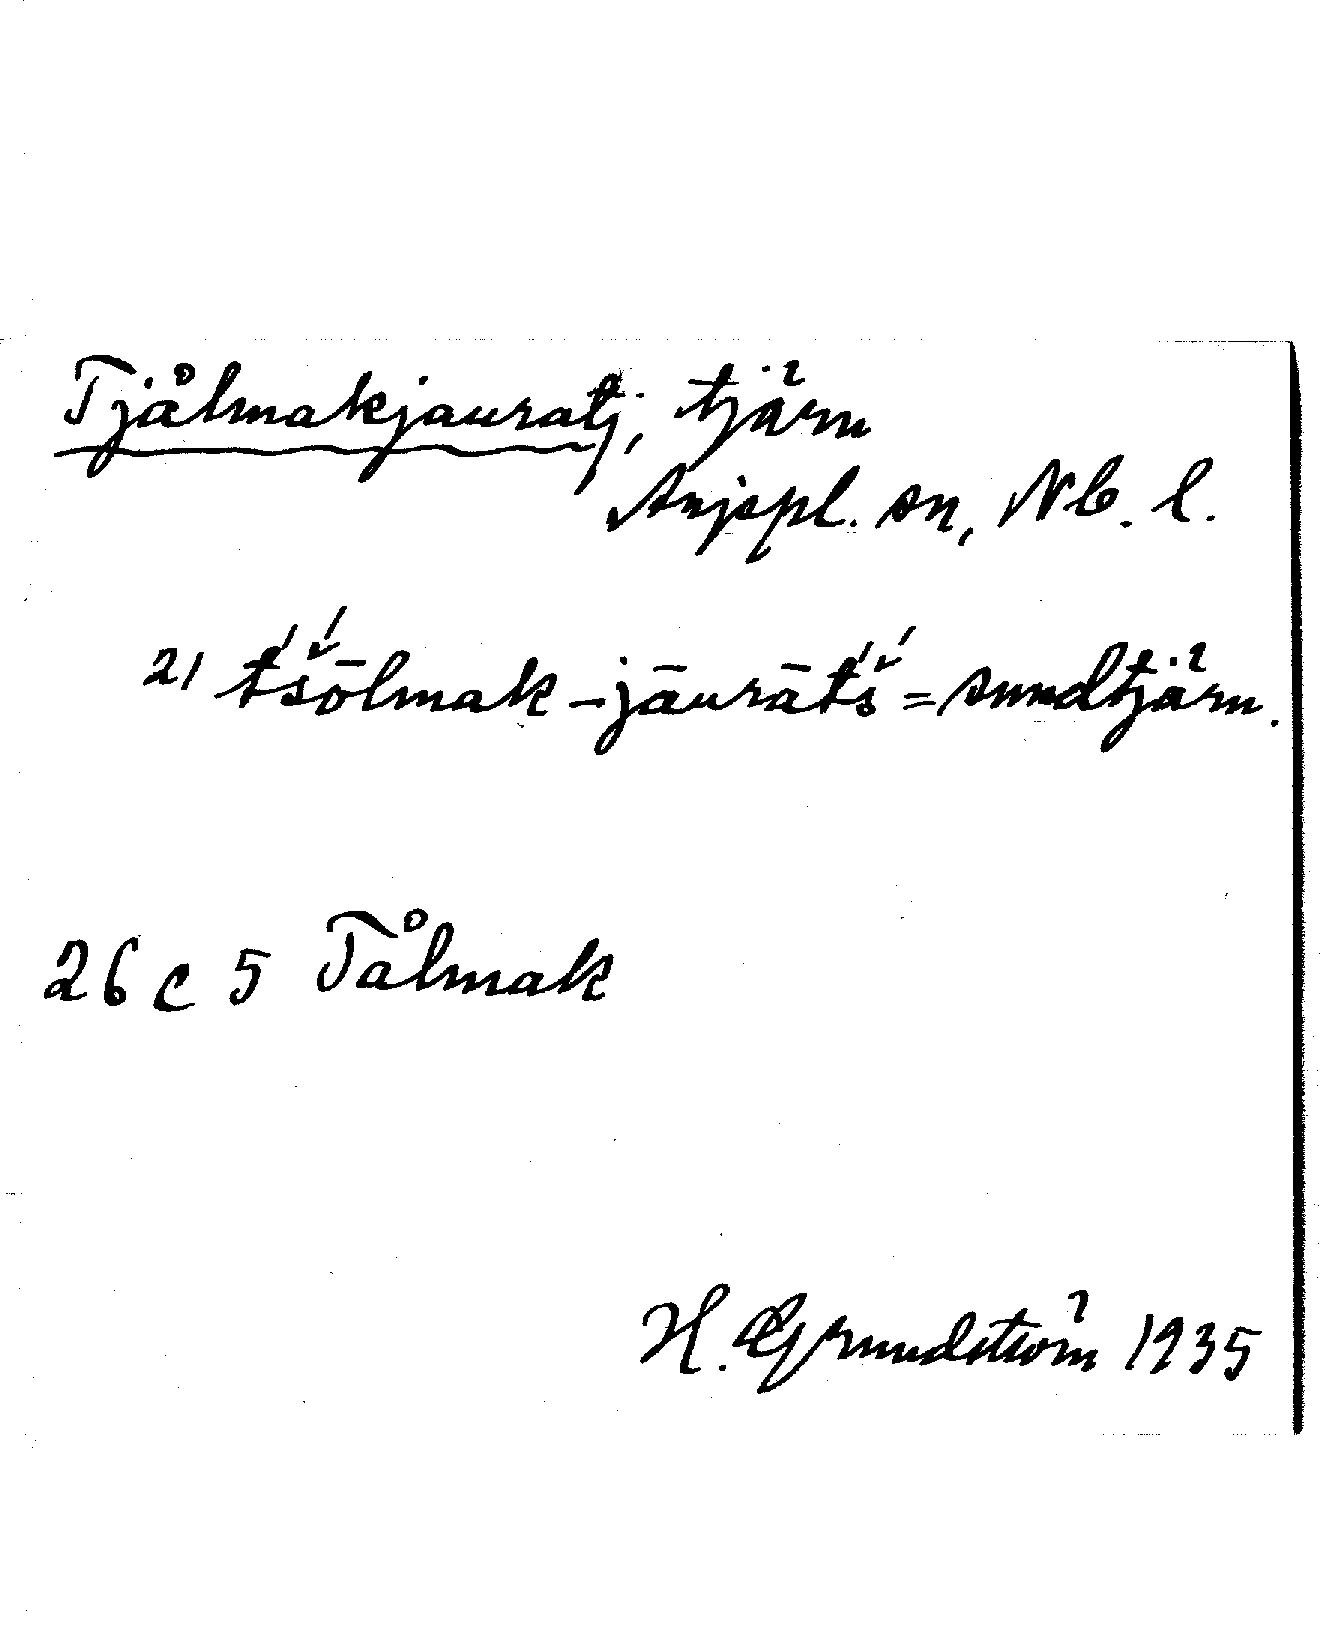 Tjålmakjauratj, tjärn
Arjepl. sn, Nb. l.
21 t́š́ōlmak-jāurāt́š́ = sundtjärn.
26 c 5 Tålmak
H. Grundström 1935